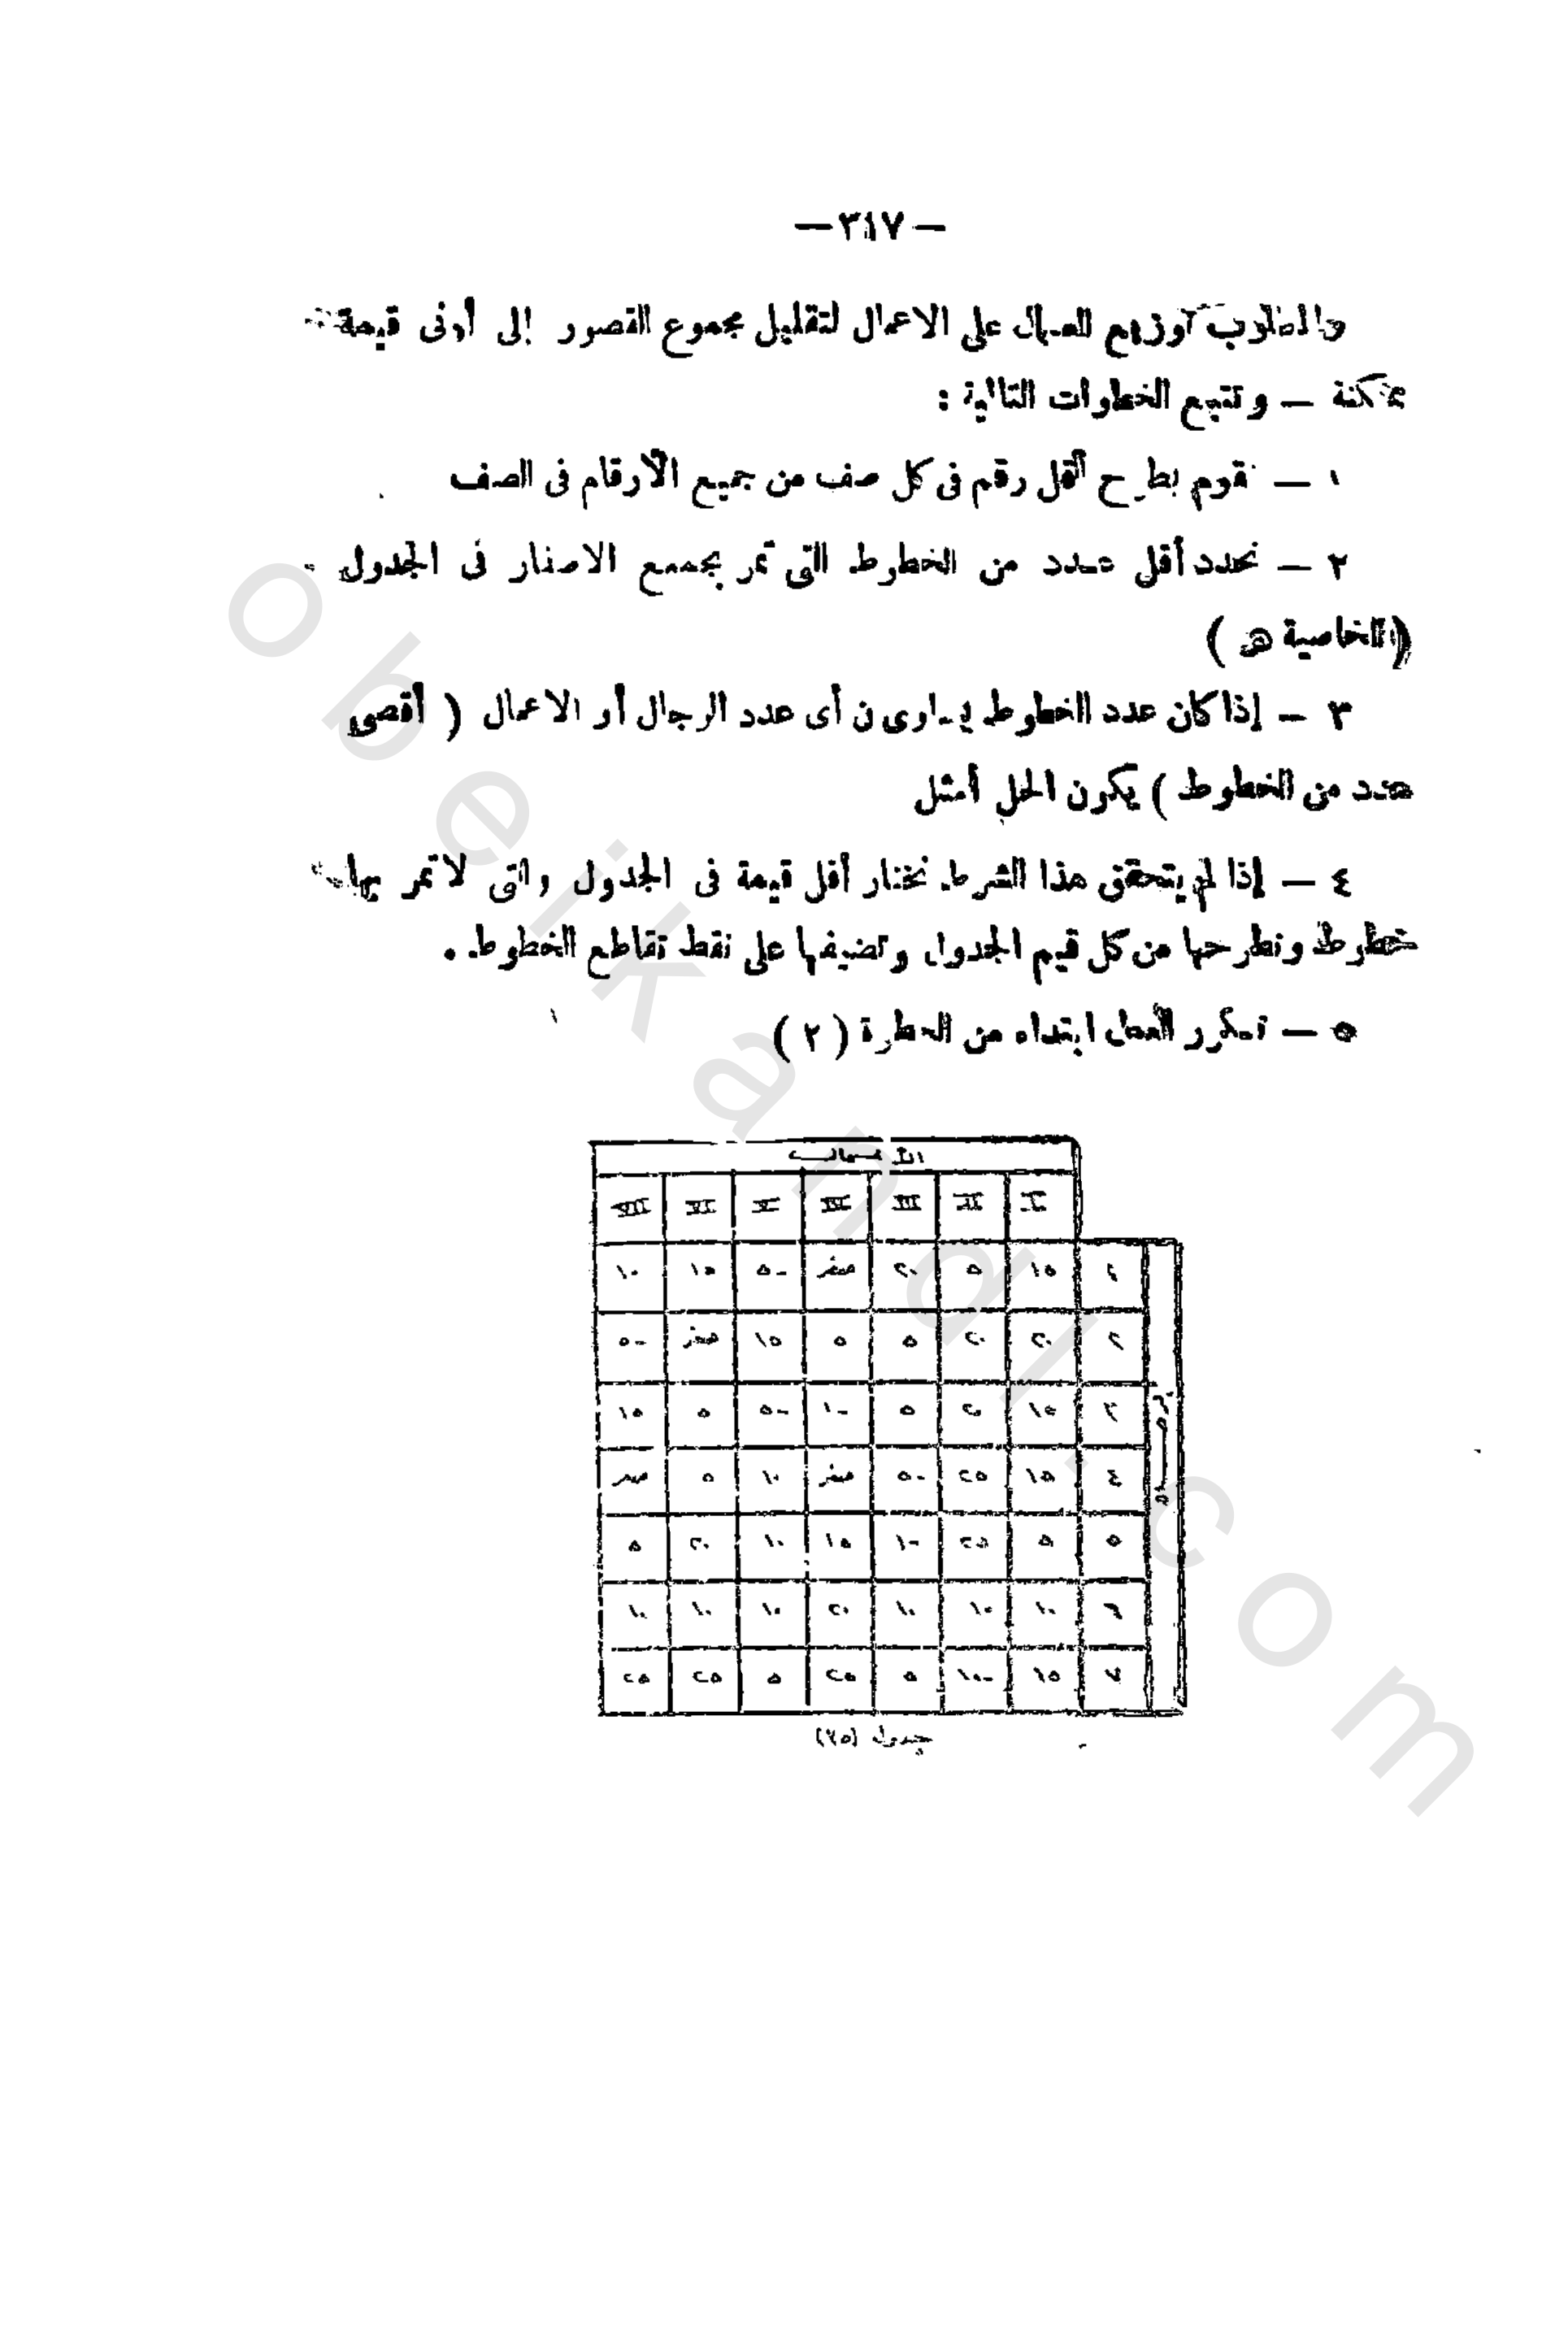 — ٣١٧ —
والمطلوب توزيع العمال على الاعمال لتقليل مجموع القصور إلى أدنى قيمة
ممكنة — وتتبع الخطوات التالية :
١ — نقوم بطرح أقل رقم فى كل صف من جميع الأرقام فى الصف
٢ — نحدد أقل عدد من الخطوط التى تمر بجميع الاصفار فى الجدول
(الخاصية هـ )
٣ — إذا كان عدد الخطوط يساوى ن أى عدد الرجال أو الاعمال ( أقصى
عدد من الخطوط ) يكون الحل أمثل
٤ — إذا لم يتحقق هذا الشرط نختار أقل قيمة فى الجدول والتى لا تمر بها
خطوط ونطرحها من كل قيم الجدول وتضيفها على نقط تقاطع الخطوط .
٥ — تكرر العمل ابتداء من الخطوة ( ٢ )
الأعمال
I II III IV V VI VII
١ ١٥ ٥ ٢٠ صفر -٥ ١٥ ١٠
٢ ٢٠ ٢٠ ٥ ٥ ١٥ صفر -٥
٣ ١٥ ٢٠ ٥ -١٠ -٥ ٥ ١٥
٤ ١٥ ٢٥ -٥ صفر ١٠ ٥ صفر
٥ ٥ ٢٥ -١٠ ١٥ ١٠ ٢٠ ٥
٦ ١٠ ١٥ ١٠ ٢٠ ١٠ ١٠ ١٠
٧ ١٥ -١٠ ٥ ٢٥ ٥ ٢٥ ٢٥
جدول (٧٥)
obeikandl.com